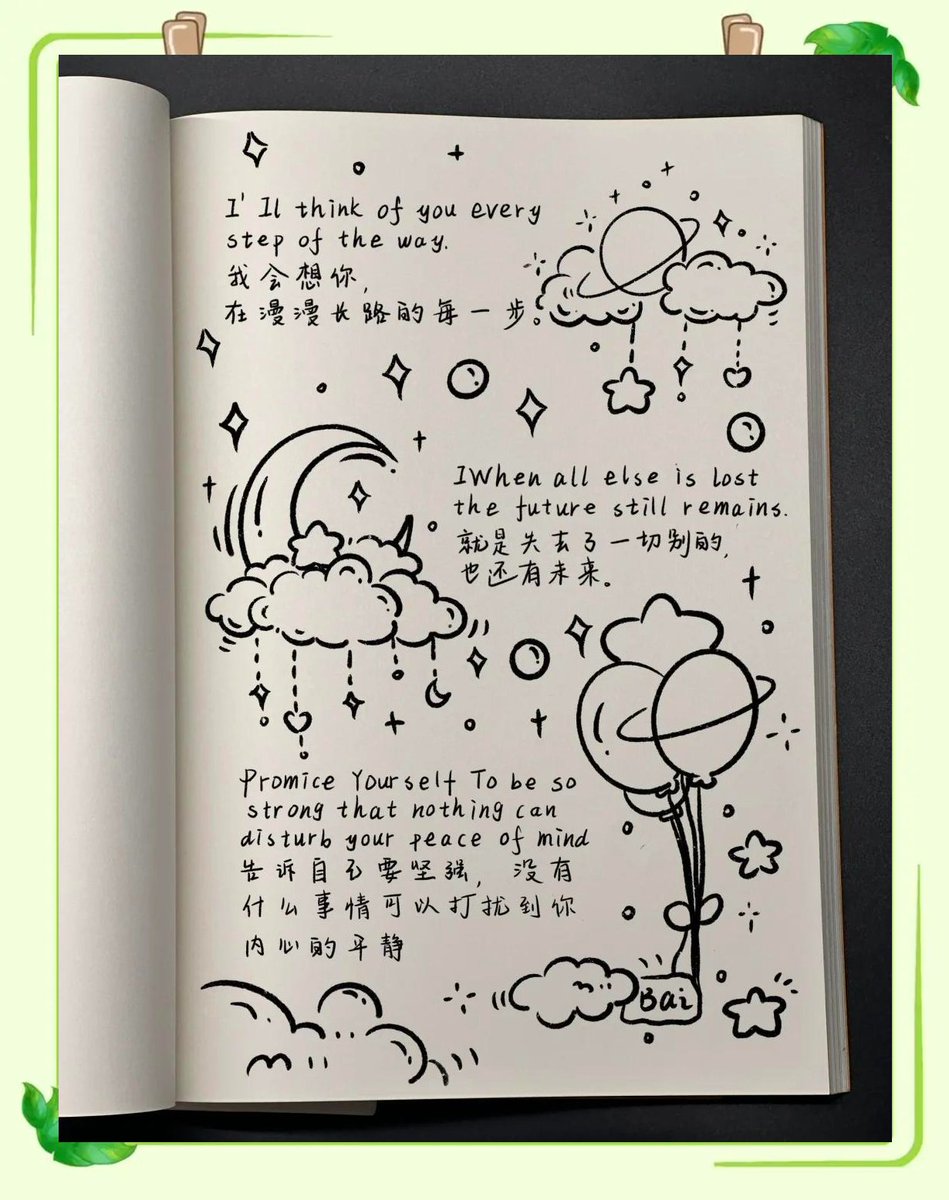 I' Il think of you every
step of the way.
我会想你,
在漫漫长路的每一步。
IWhen all else is lost
the future still remains.
就是失去了一切别的,
也还有未来。
Promice Yourself To be so
strong that nothing can
disturb your peace of mind
告诉自己要坚强, 没有
什么事情可以打扰到你
内心的平静
Bai